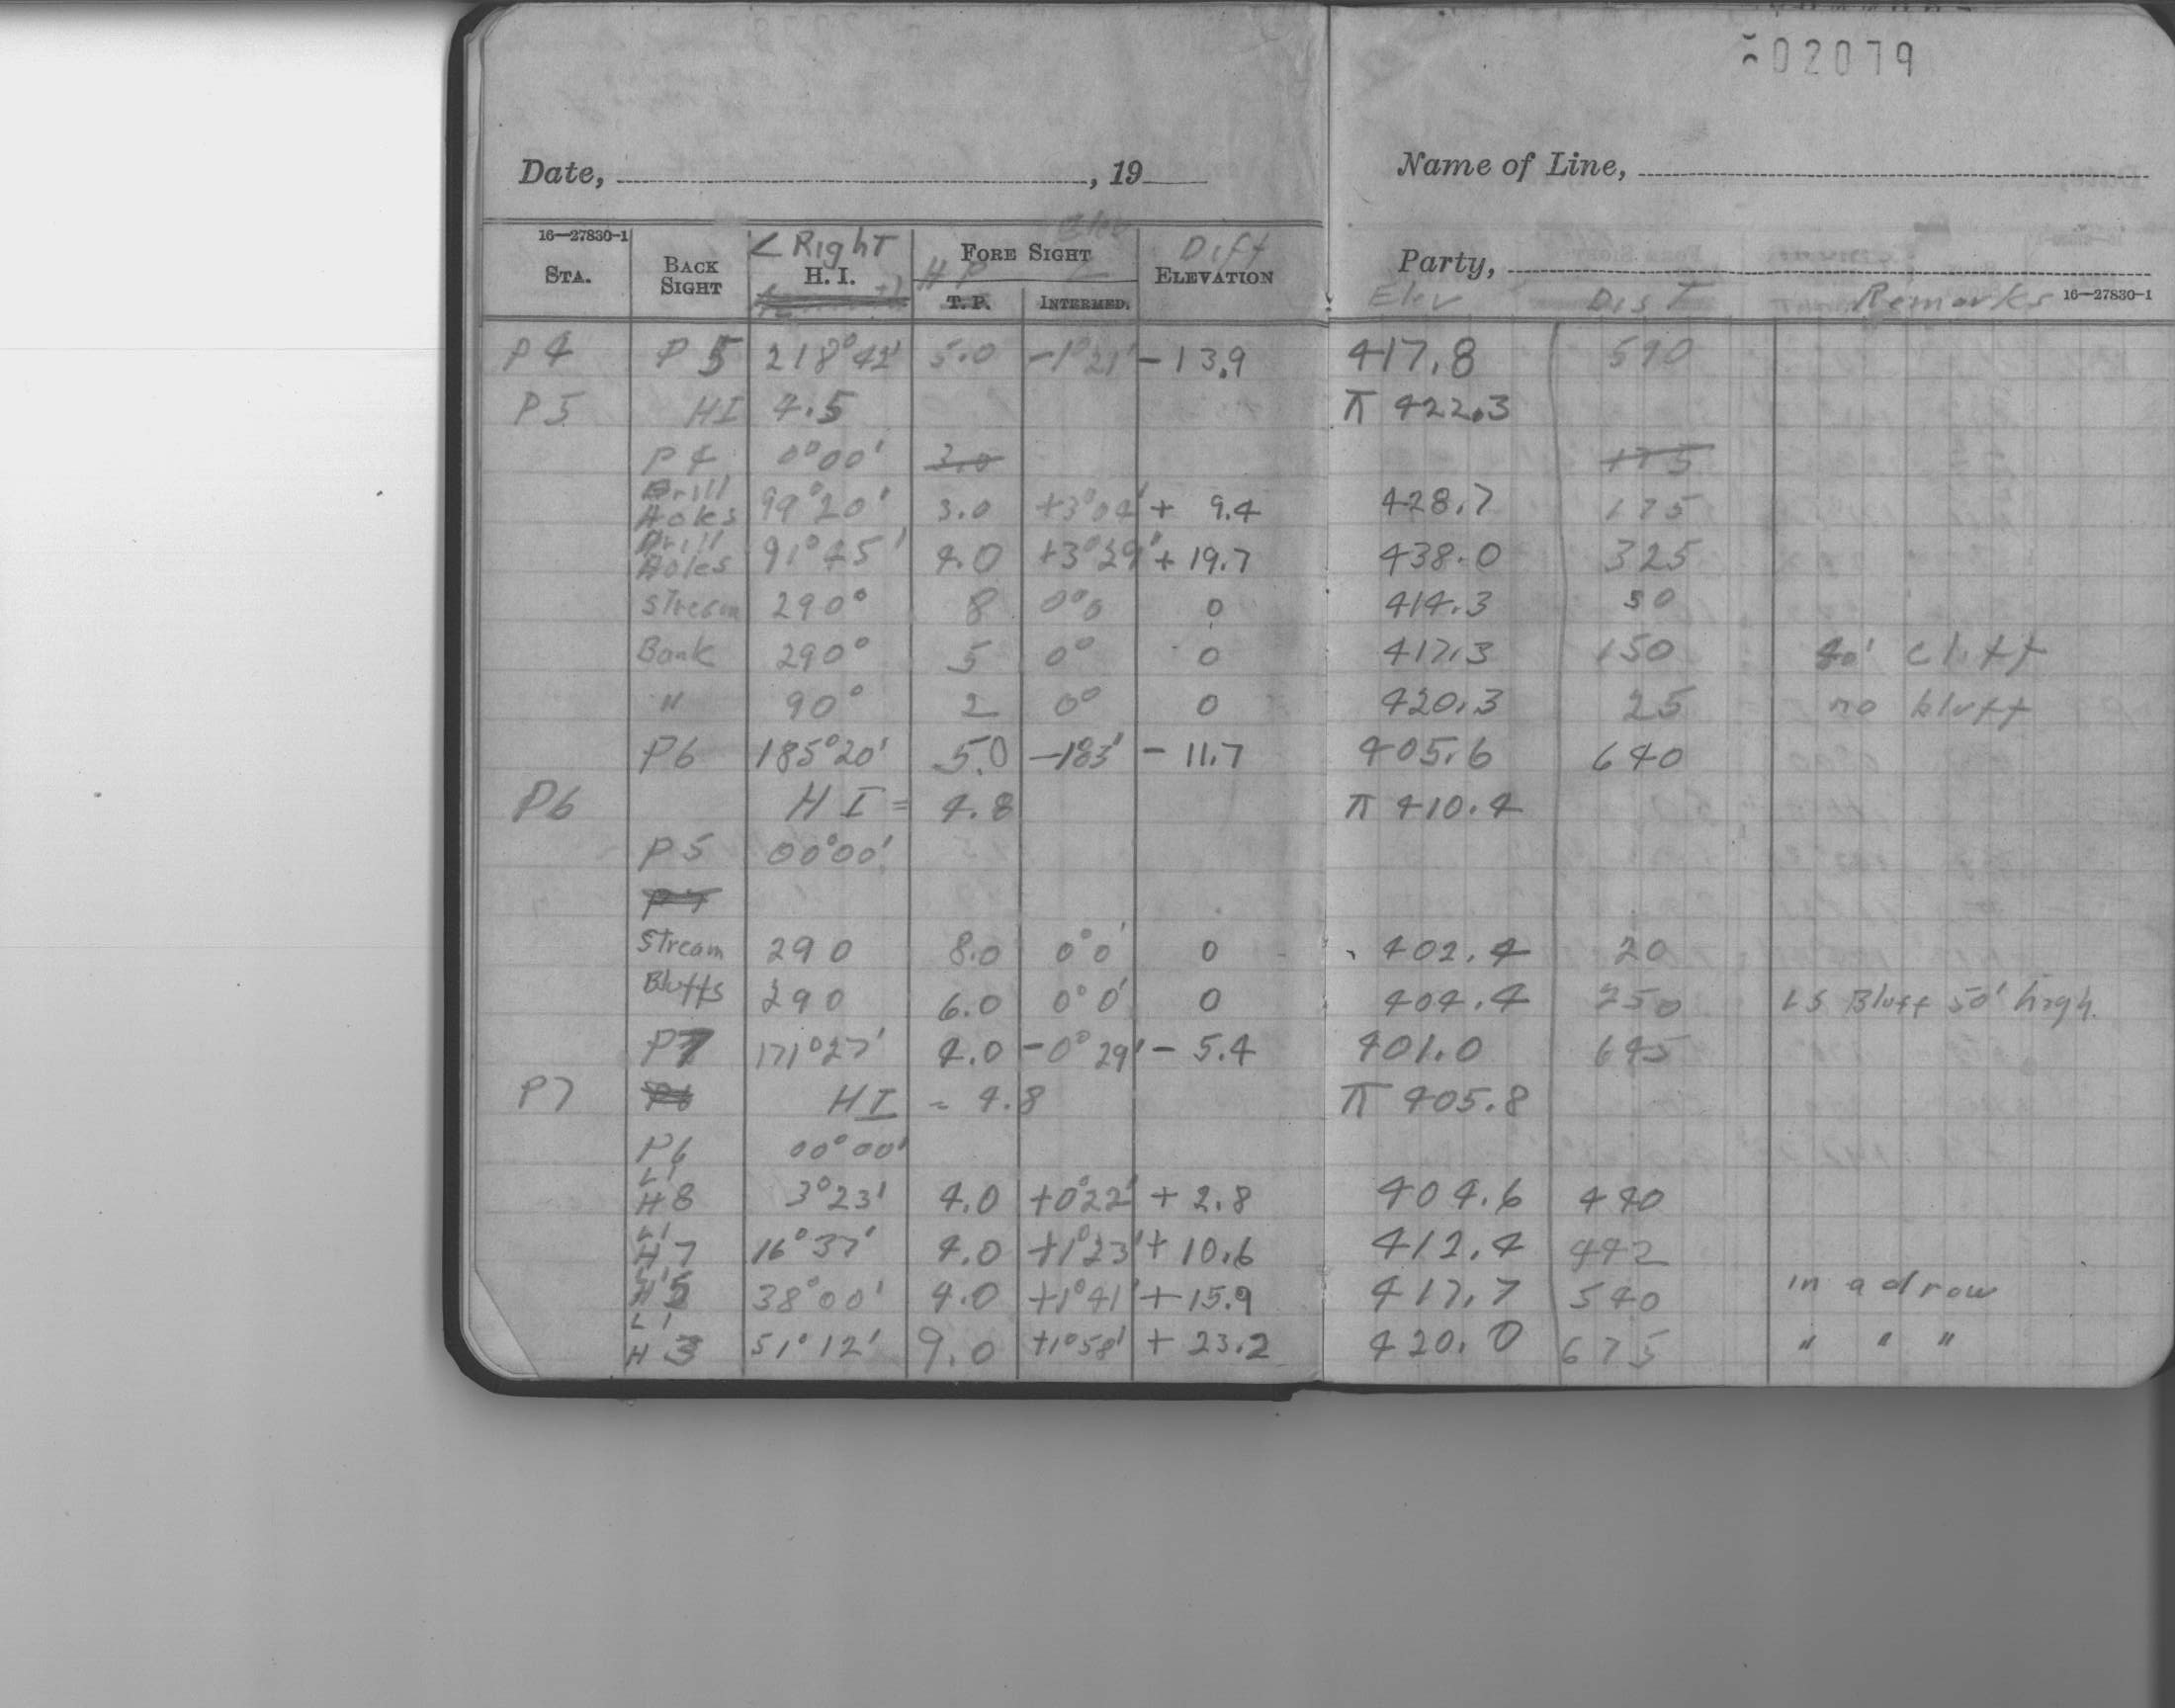 02079
Date, , 19
Name of Line,
16—27830-1
STA.
BACK SIGHT
< Right
H. I.
FORE SIGHT
Elev
H P <
T. P.
INTERMED.
Diff
ELEVATION
Party,
Elev Dist Remarks 16—27830-1
P4 P5 218°42' 5.0 -1°21' -13.9 417.8 590
P5 HI 4.5 π 422.3
P4 0°00' 3.0 175
Drill Holes 99°20' 3.0 +3°04' + 9.4 428.7 175
Drill Holes 91°45' 4.0 +3°29' + 19.7 438.0 325
Stream 290° 8 0°0 0 414.3 50
Bank 290° 5 0° 0 417.3 150 40' cliff
" 90° 2 0° 0 420.3 25 no bluff
P6 185°20' 5.0 -1°03' - 11.7 405.6 640
P6 HI = 4.8 π 410.4
P5 00°00'
P7
Stream 290 8.0 0°0' 0 402.4 20
Bluffs 290 6.0 0°0' 0 404.4 250 LS Bluff 50' high.
P7 171°27' 4.0 -0°29' - 5.4 401.0 645
P7 P6 HI = 4.8 π 405.8
P6 00°00'
L1 H8 3°23' 4.0 +0°22' + 2.8 404.6 440
L1 H7 16°37' 4.0 +1°23' + 10.6 412.4 442
L1 H5 38°00' 4.0 +1°41' + 15.9 417.7 540 in a draw
L1 H3 51°12' 9.0 +1°58' + 23.2 420.0 675 " " "